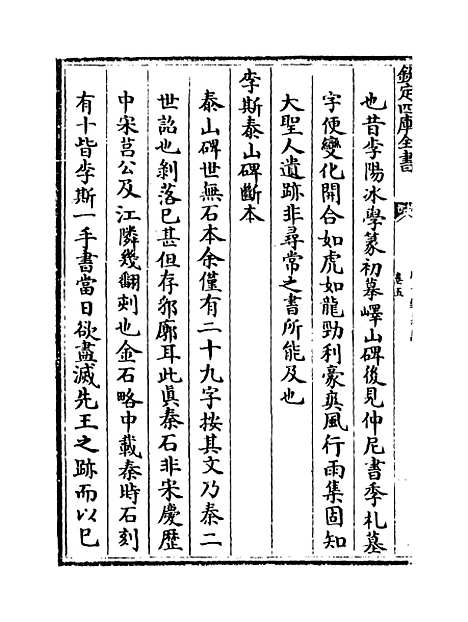 欽定四庫全書
卷五
也昔李陽冰學篆初摹嶧山碑後見仲尼書季札墓
字便變化開合如虎如龍勁利豪爽風行雨集固知
大聖人遺跡非尋常之書所能及也
李斯泰山碑斷本
泰山碑世無石本余僅有二十九字按其文乃秦二
世詔也剝落已甚但存郛廓耳此真秦石非宋慶歴
中宋莒公及江隣幾翻刻也金石略中載秦時石刻
有十皆李斯一手書當日欲盡滅先王之跡而以已